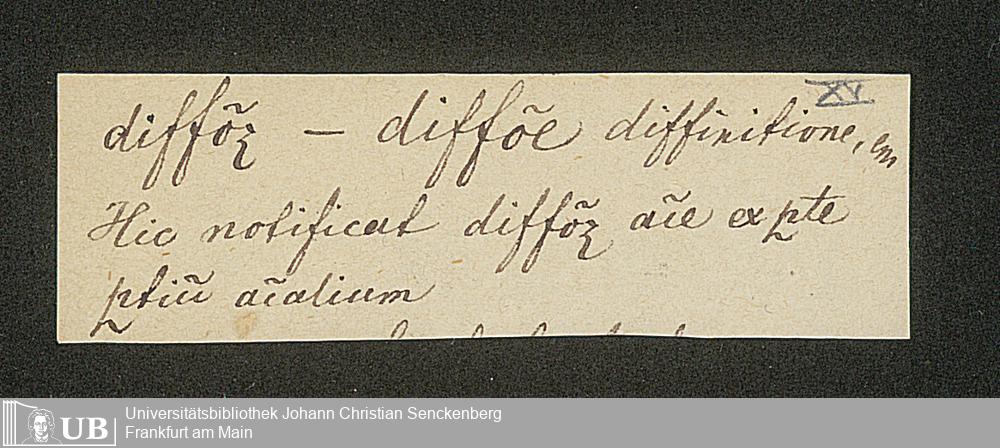 XV
diffõꝫ — diffõe diffinitione, em
Hic notificat diffõꝫ aĩe ex ꝑte
ꝑtiũ aĩalium
UB Universitätsbibliothek Johann Christian Senckenberg
Frankfurt am Main